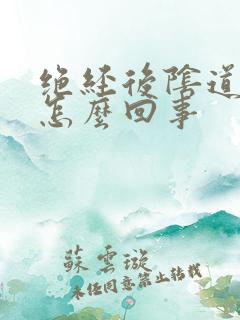 绝经後陰道
怎麼回事
蘇雲璇
未任同意禁止轉載